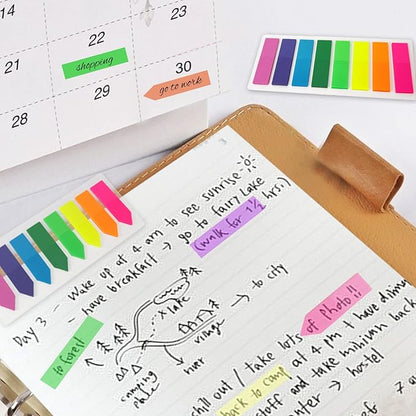 14
21
28
22
shopping
29
23
go to work
30
Day 3 - Wake up at 4 am to see sunrise
- have breakfast → go to fairy Lake
(walk for 1 1/2 hrs!)
to forest
Lake
→ to city
village
river
camping place
of photo!!
chill out / take lots
back to camp at 4 PM
off and take
→ hostel